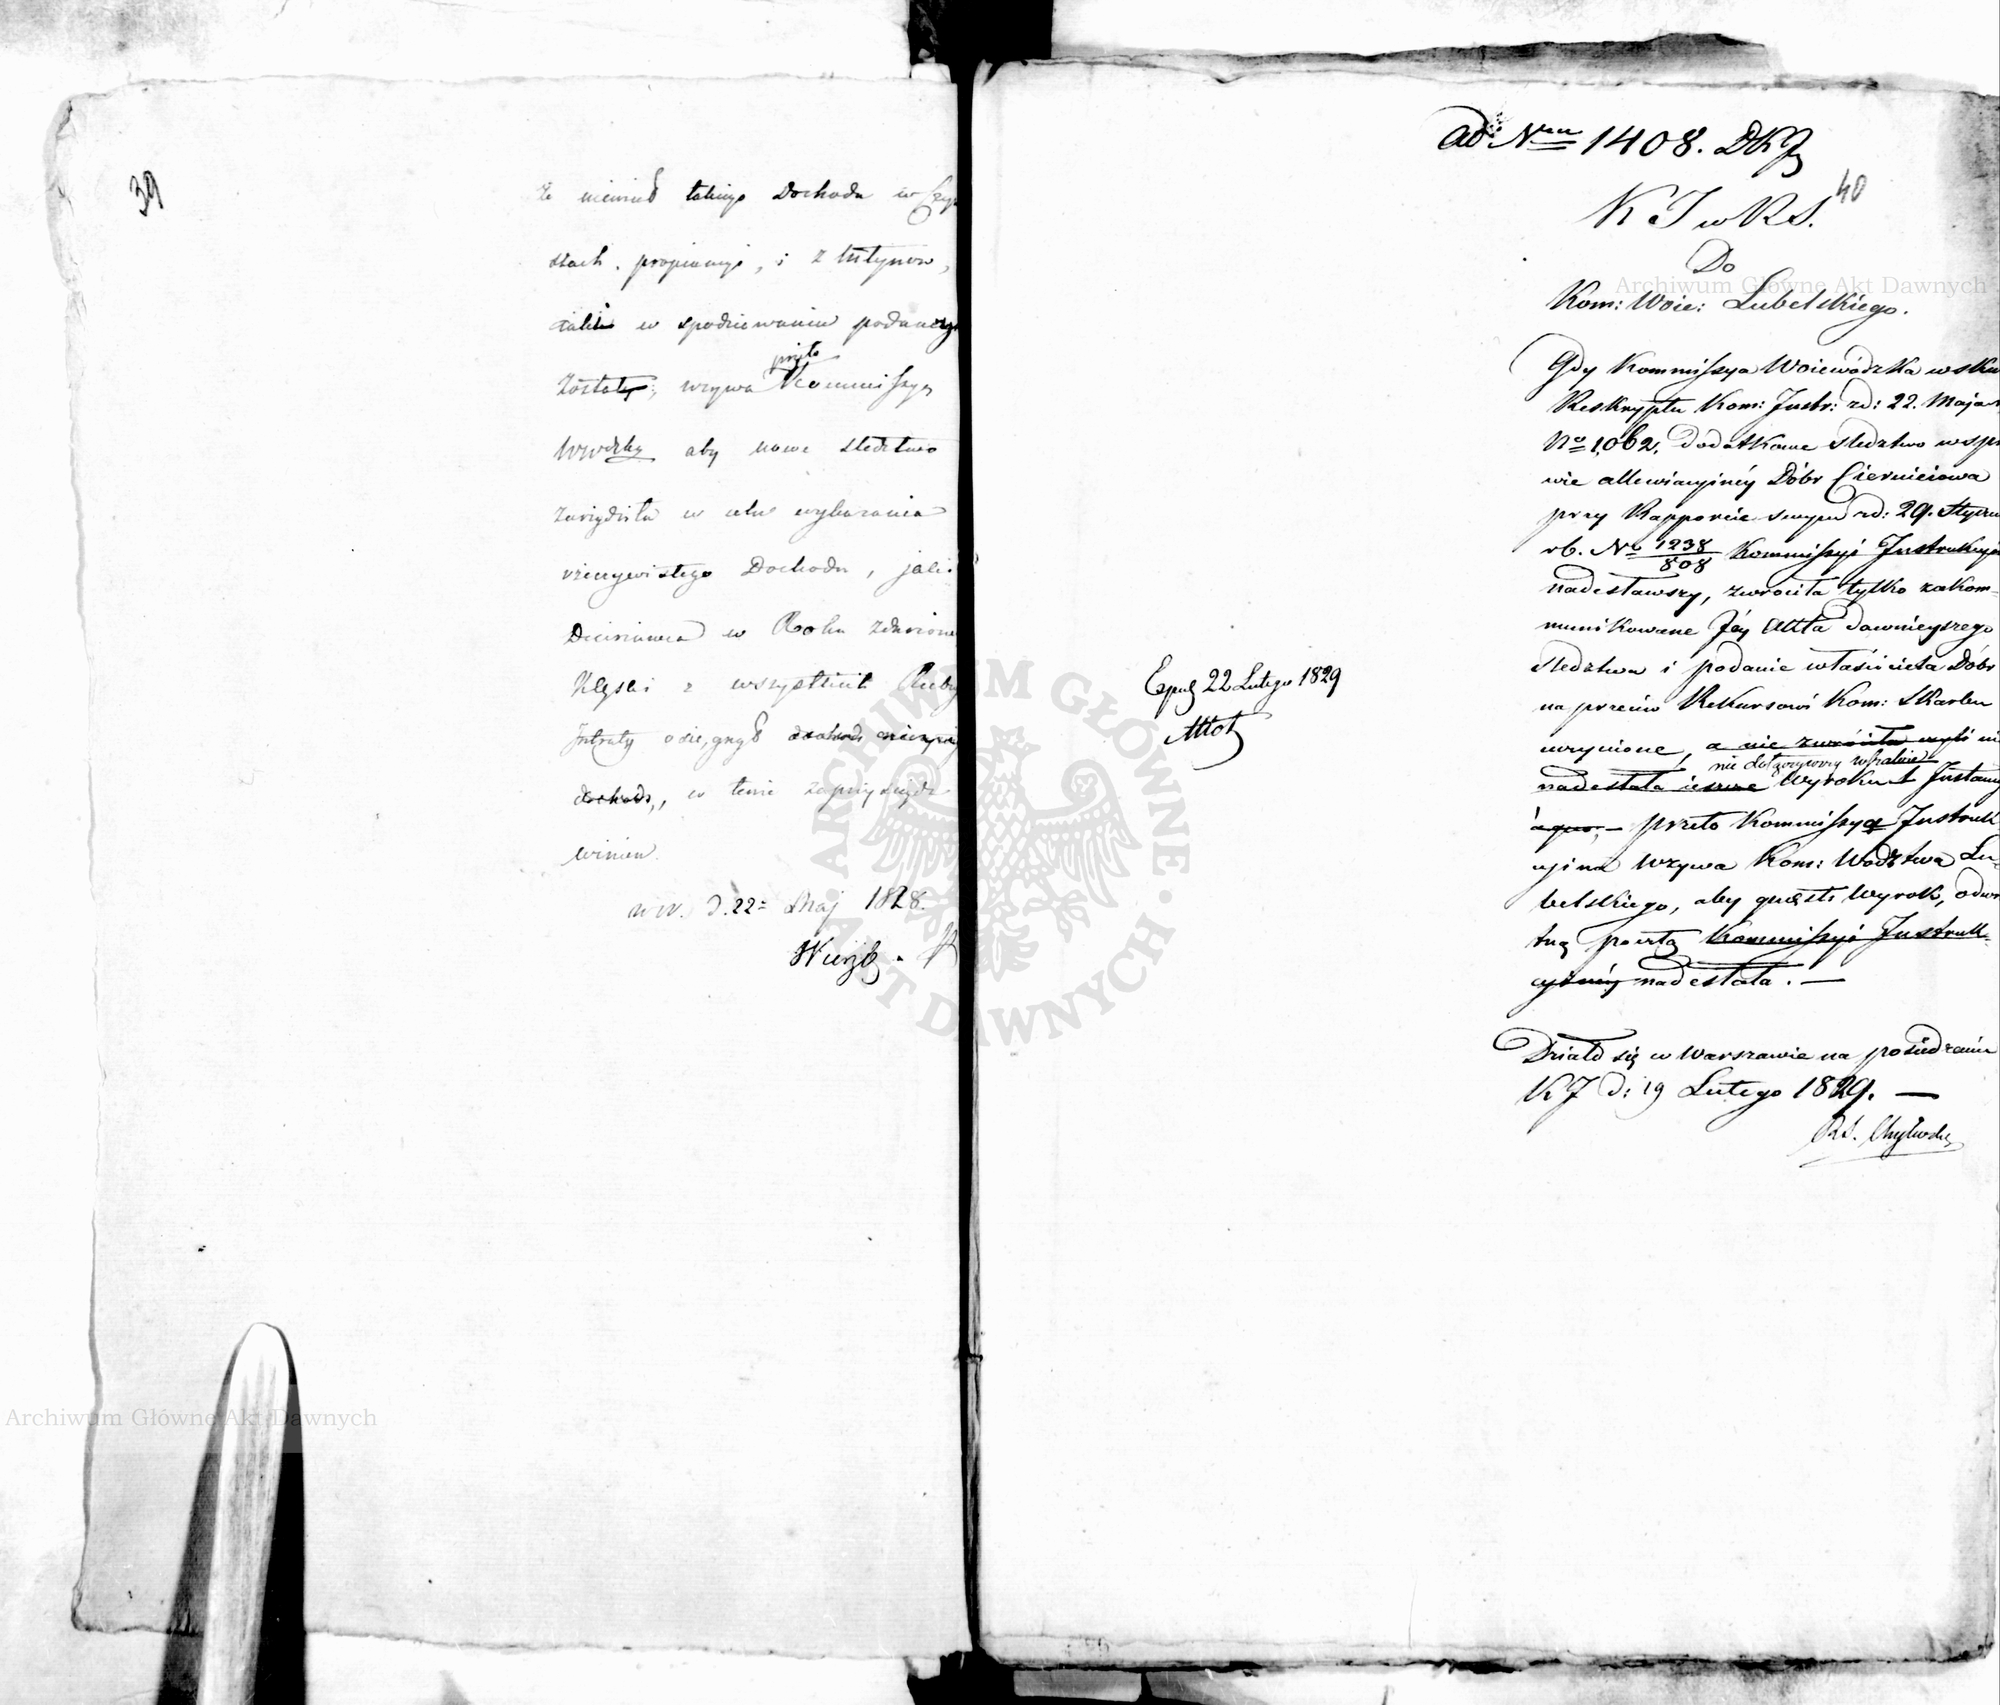 39
niemiał takiego Dochodu w Czyn
szach, propinacyi, i z
iakie w spodziewaniu podane
zostały; wzywa przeto Kommissyą
Wwdzką aby nowe śledztwo
zarządziła w celu wykazania
rzeczywistego Dochodu, jaki
Dzierżawca w Roku zdarzonéy
Klęski z wszystkich Rubryk
Intraty osiągnął dochod
dochod, w tenie zaprzysiądz
winien.
w W. d. 22 Maj 1828.
ad Nrum 1408. DKJ
40
K J w R S.
Do
Kom: Woie: Lubelskiego.
Gdy Kommissya Woiewódzka wsku
Reskryptu Kom: Instr: zd: 22. Maja
No 1,062, dodatkowe śledztwo wspra
wie allewiacyinéy Dóbr Cierniciowa
przy Rapporcie swym zd: 29. Styczn
rb. No 1238/808 Kommissyi Instrukcyi
nadesławszy, zwróciła tylko zakom-
munikowane Jéy Akta dawnieyszego
śledztwa i podanie właściciela Dóbr
na przeciw Rekursowi Kom: Skarbu
uczynione, a nie zwróciła czyli nie
nie dołączywszy wszakże
nadesłała ieszcze Wyroku Instancyi
a quo, – przeto Kommissya Instruk-
cyina wzywa Kom: Wodztwa Lu-
belskiego, aby quaest: Wyrok, odwro
tną pocztą Kommissyi Instruk-
cyinéy nadesłała. —
Działo się w Warszawie na posiedzeniu
KJ d: 19 Lutego 1829. —
Exped 22 Lutego 1829